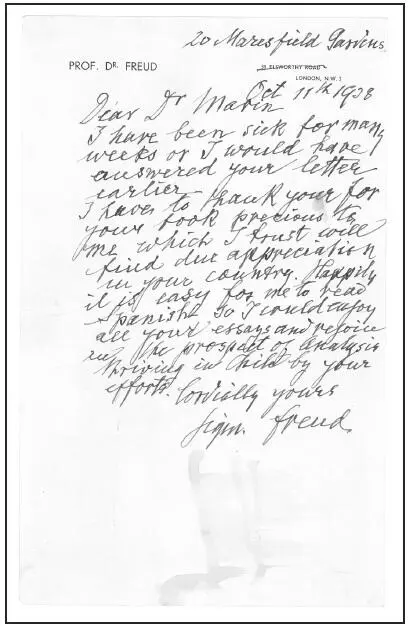 20 Maresfield Gardens
PROF. DR. FREUD
39 ELSWORTHY ROAD
LONDON, N.W. 3
Oct 11th 1938
Dear Dr Marin
I have been sick for many
weeks or I would have
answered your letter
earlier
I have to thank your for
your book precious to
me which I trust will
find due appreciation
in your country. Happily
it is easy for me to read
Spanish. So I could enjoy
all your essays and rejoice
in the prospect of Analysis
thriving in Chile by your
efforts.
Cordially yours
Sigm. Freud.